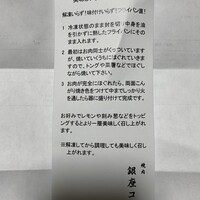 解凍いらず！味付けいらず！フライパン調
1 冷凍状態のまま封を切り中身を油
を引かずに熱したフライパンにその
まま入れます。
2 最初はお肉同士がくっついています
が、焼いていくうちにほぐれていきま
すので、トングや菜箸などでほぐし
ながら焼いて下さい。
3 お肉が完全にほぐれたら、両面こん
がり焼き色をつけて中までしっかり火
を通したら器に盛り付けて完成です。
お好みでレモンや刻み葱などをトッ
ピングするとより一層美味しく召し上
がれます。
※解凍してから調理しても美味しく召し
上がれます。
焼肉
銀座コ